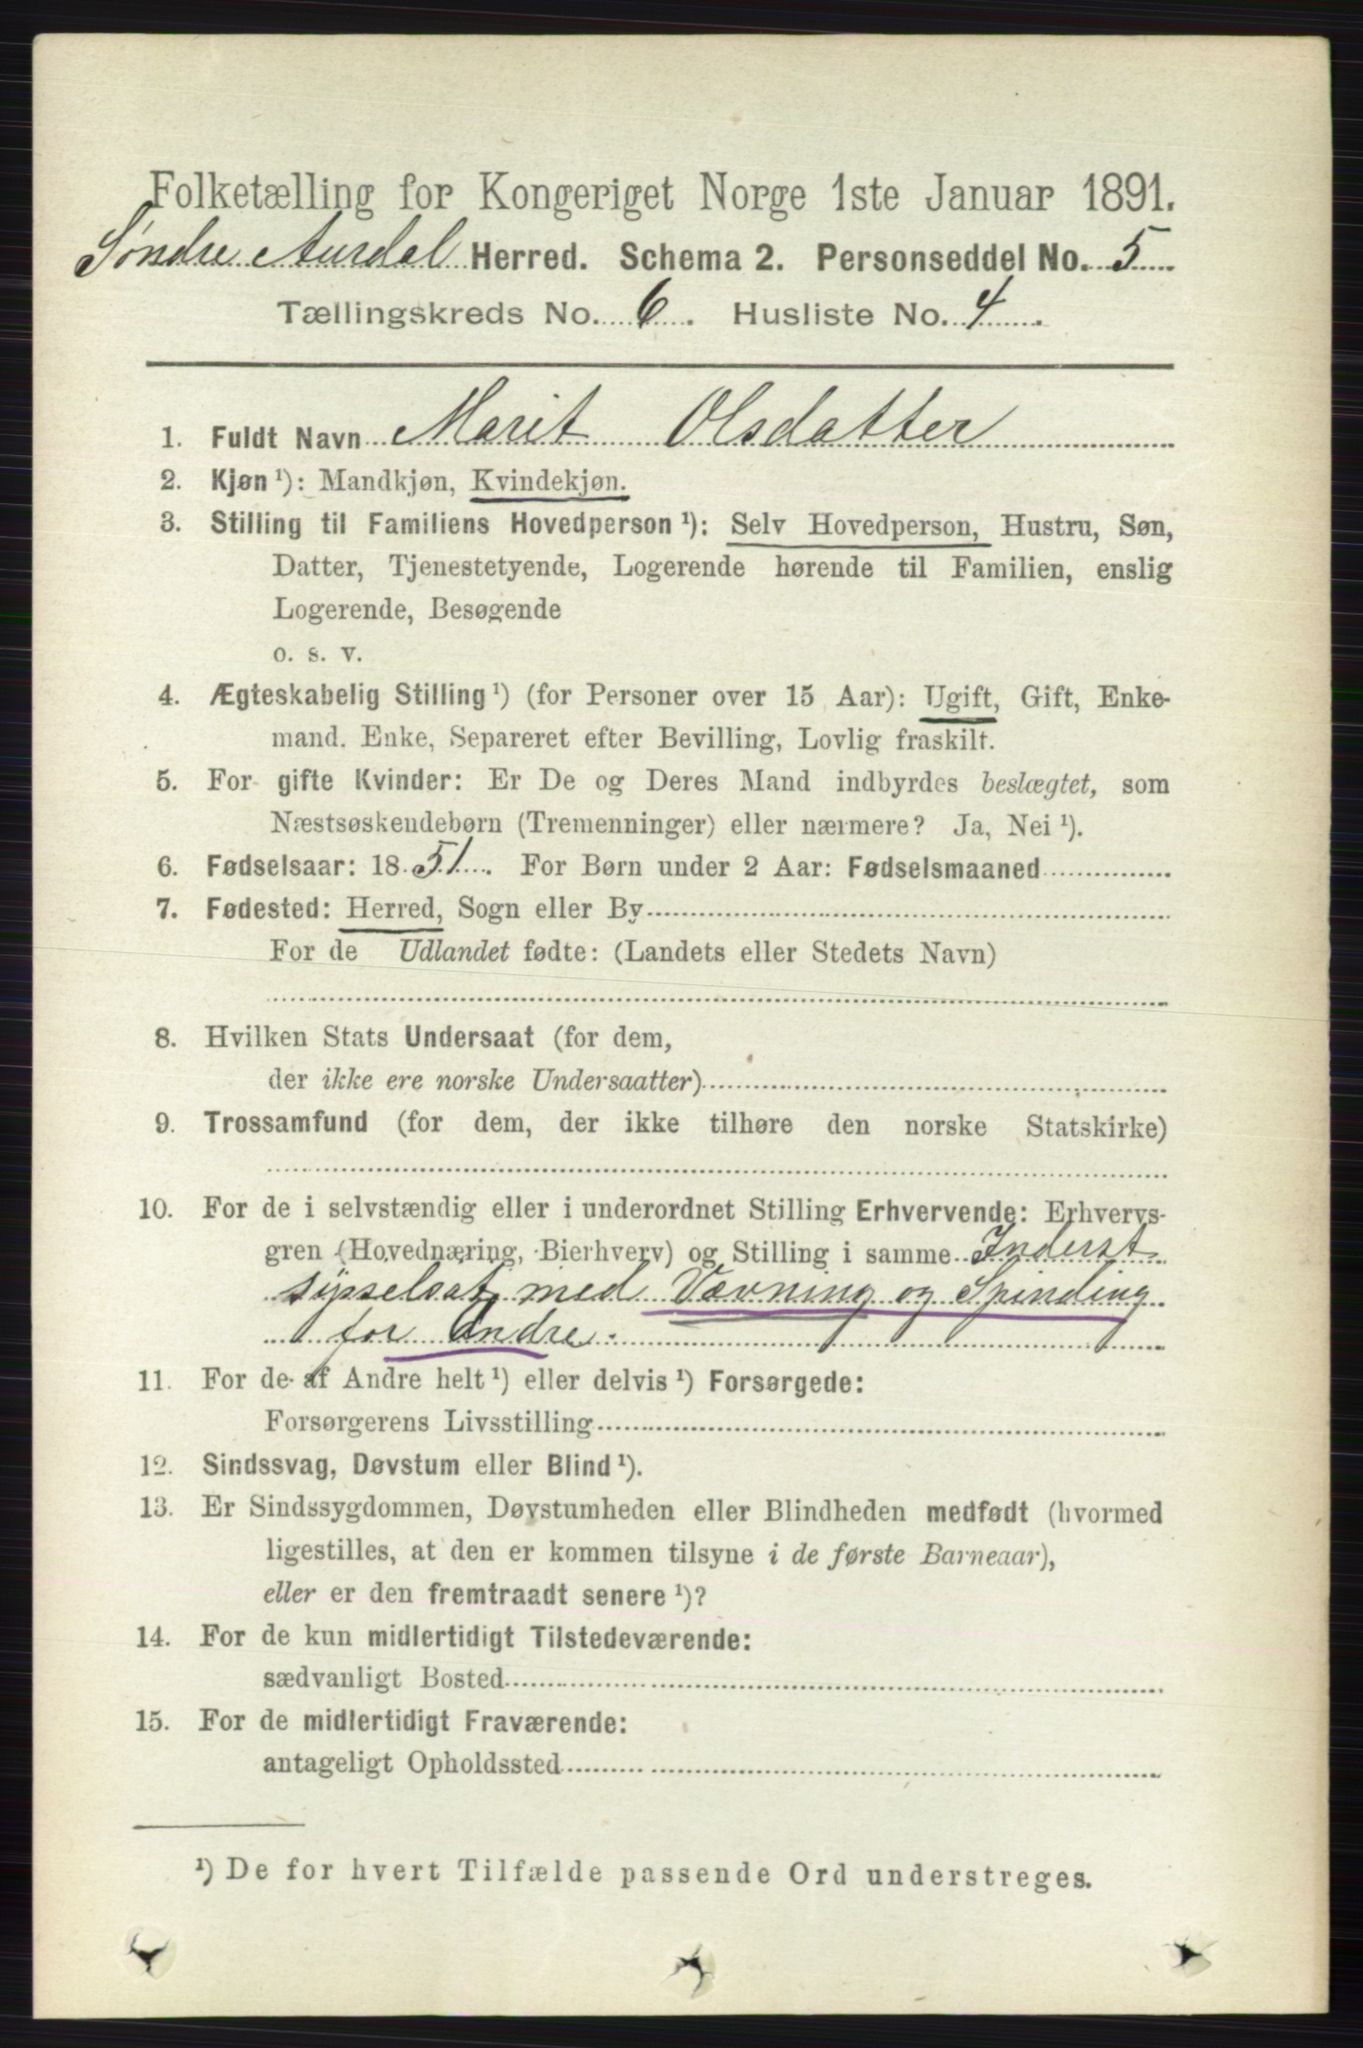 Folketælling for Kongeriget Norge 1ste Januar 1891.
Søndre Aurdal Herred. Schema 2. Personseddel No. 5
Tællingskreds No. 6. Husliste No. 4.
1. Fuldt Navn Marit Olsdatter
2. Kjøn ¹): Mandkjøn, Kvindekjøn.
3. Stilling til Familiens Hovedperson ¹): Selv Hovedperson, Hustru, Søn,
Datter, Tjenestetyende, Logerende hørende til Familien, enslig
Logerende, Besøgende
o. s. v.
4. Ægteskabelig Stilling ¹) (for Personer over 15 Aar): Ugift, Gift, Enke-
mand. Enke, Separeret efter Bevilling, Lovlig fraskilt.
5. For gifte Kvinder: Er De og Deres Mand indbyrdes beslægtet, som
Næstsøskendebørn (Tremenninger) eller nærmere? Ja, Nei ¹).
6. Fødselsaar: 1851. For Børn under 2 Aar: Fødselsmaaned
7. Fødested: Herred, Sogn eller By
For de Udlandet fødte: (Landets eller Stedets Navn)
8. Hvilken Stats Undersaat (for dem,
der ikke ere norske Undersaatter)
9. Trossamfund (for dem, der ikke tilhøre den norske Statskirke)
10. For de i selvstændig eller i underordnet Stilling Erhvervende: Erhvervs-
gren (Hovednæring, Bierhverv) og Stilling i samme Inderst
sysselsat med Vævning og Spinding
for Andre.
11. For de af Andre helt ¹) eller delvis ¹) Forsørgede:
Forsørgerens Livsstilling
12. Sindssvag, Døvstum eller Blind ¹).
13. Er Sindssygdommen, Døvstumheden eller Blindheden medfødt (hvormed
ligestilles, at den er kommen tilsyne i de første Barneaar),
eller er den fremtraadt senere ¹)?
14. For de kun midlertidigt Tilstedeværende:
sædvanligt Bosted
15. For de midlertidigt Fraværende:
antageligt Opholdssted
¹) De for hvert Tilfælde passende Ord understreges.